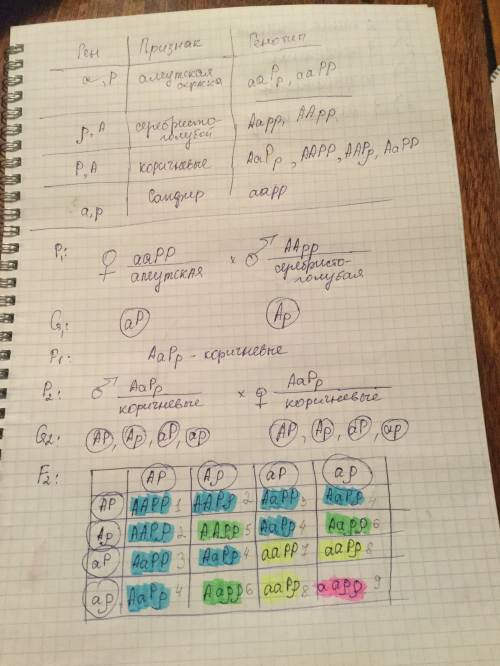 Ген Признак Генотип
a, P алеутская окраска aaPp, aaPP
p, A серебристо-голубой Aapp, AApp
P, A коричневые AaPp, AAPP, AAPp, AaPP
a, p Сапфир aapp
P1: ♀ aaPP × ♂ AApp
алеутская серебристо-голубая
G1: aP Ap
F1: AaPp - коричневые
P2: ♂ AaPp × ♀ AaPp
коричневые коричневые
G2: AP, Ap, aP, ap AP, Ap, aP, ap
F2: AP Ap aP ap
AP AAPP 1 AAPp 2 AaPP 3 AaPp 4
Ap AAPp 2 AApp 5 AaPp 4 Aapp 6
aP AaPP 3 AaPp 4 aaPP 7 aaPp 8
ap AaPp 4 Aapp 6 aaPp 8 aapp 9